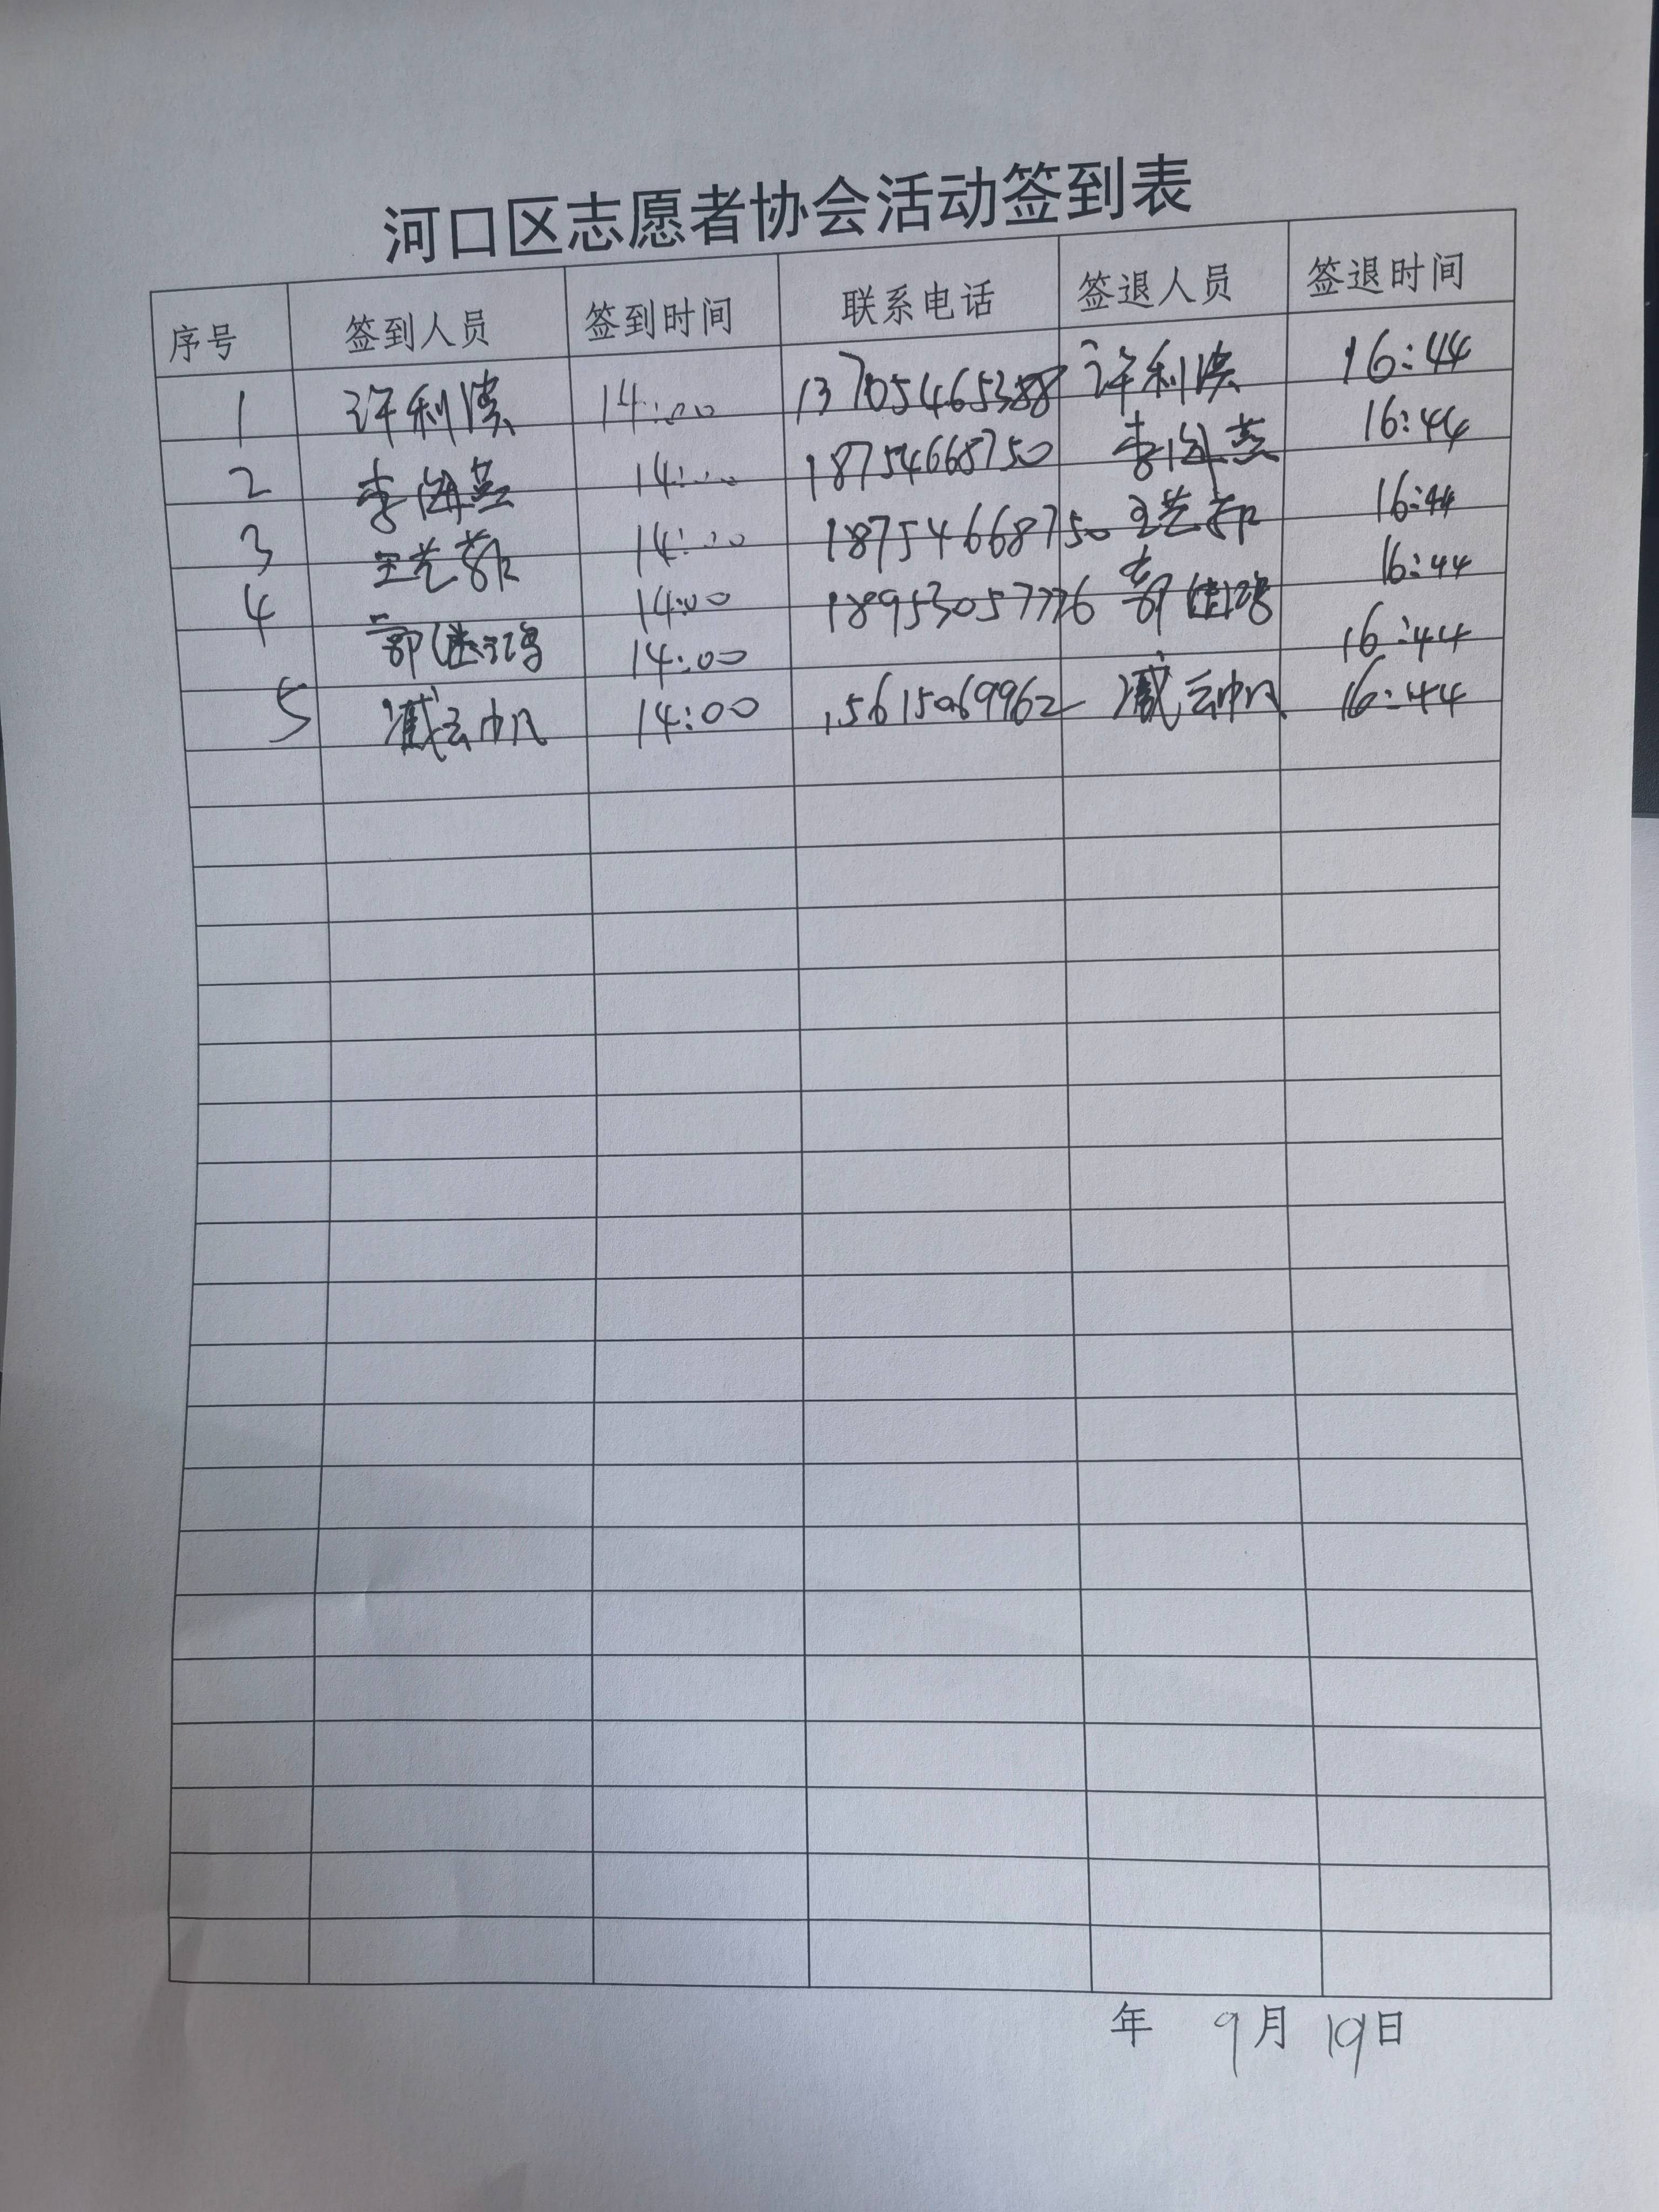 河口区志愿者协会活动签到表
序号 签到人员 签到时间 联系电话 签退人员 签退时间
1 许利滨 14:00 13705465388 许利滨 16:44
2 李海燕 14:00 18754668750 李海燕 16:44
3 王艺 14:00 18754668750 王艺 16:44
4 14:00 18953057776 16:44
14:00 16:44
5 臧云帆 14:00 15615069962 臧云帆 16:44
年 9月 19日